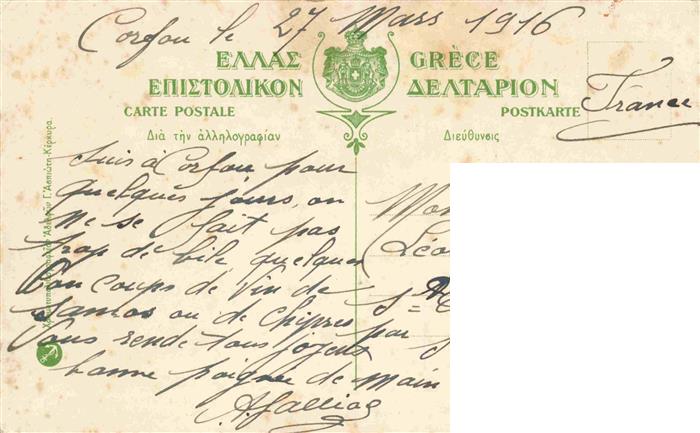 Corfou le 27 Mars 1916
ΕΛΛΑΣ GRÈCE
ΕΠΙΣΤΟΛΙΚΟΝ ΔΕΛΤΑΡΙΟΝ
CARTE POSTALE POSTKARTE
France
Διὰ τὴν ἀλληλογραφίαν Διεύθυνσις
Suis à Corfou pour
quelques jours, on
ne se fait pas
trop de bile quelques
bon coups de vin de
Samos ou de Chipres
vous rende tous joyeux
bonne poignée de main
Mon
Léo
par
Ἀσπιώτη-Κέρκυρα